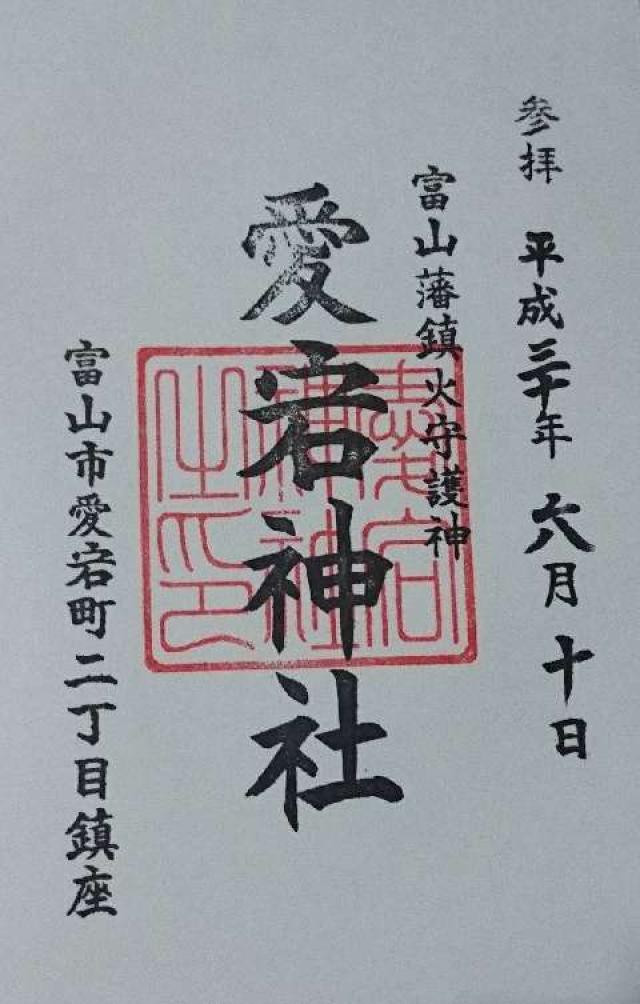 参拝 平成三十年 六月 十日
富山藩鎮火守護神
愛宕神社
愛宕神社之印
富山市愛宕町二丁目鎮座